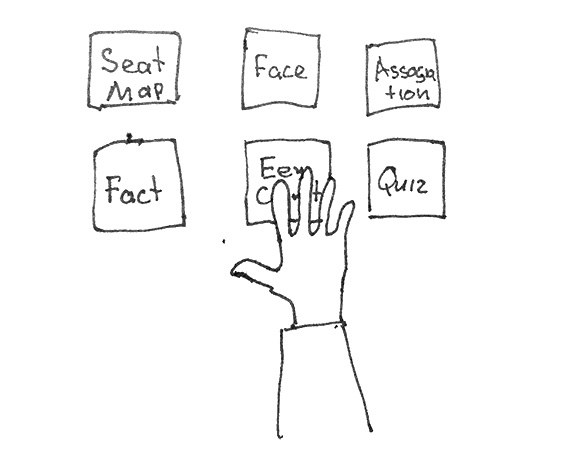 Seat
Map
Face
Associa
tion
Fact
Quiz